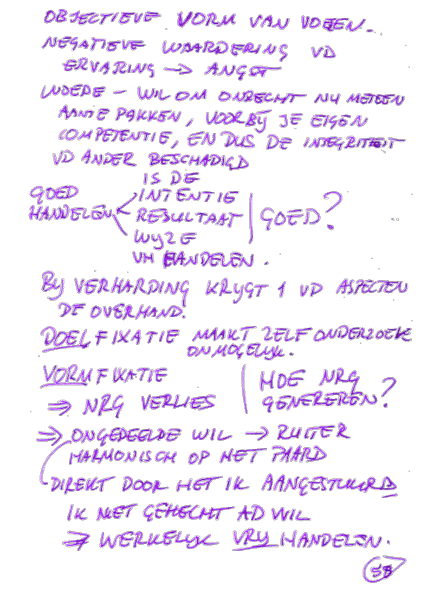 OBJECTIEVE VORM VAN VOELEN.
NEGATIEVE WAARDERING VD
ERVARING → ANGST
WOEDE - WIL OM ONRECHT NU METEEN
AAN TE PAKKEN, VOORBIJ JE EIGEN
COMPETENTIE, EN DUS DE INTEGRITEIT
VD ANDER BESCHADIGD
IS DE
GOED HANDELEN < INTENTIE
RESULTAAT | GOED?
WIJZE
VH HANDELEN.
BIJ VERHARDING KRIJGT 1 VD ASPECTEN
DE OVERHAND.
DOELFIXATIE MAAKT ZELFONDERZOEK
ONMOGELIJK.
VORMFIXATIE | HOE NRG
⇒ NRG VERLIES | GENEREREN?
⇒ ONGEDEELDE WIL → RUITER
HARMONISCH OP HET PAARD
DIREKT DOOR HET IK AANGESTUURD
IK NIET GEHECHT AD WIL
⇒ WERKELIJK VRIJ HANDELEN.